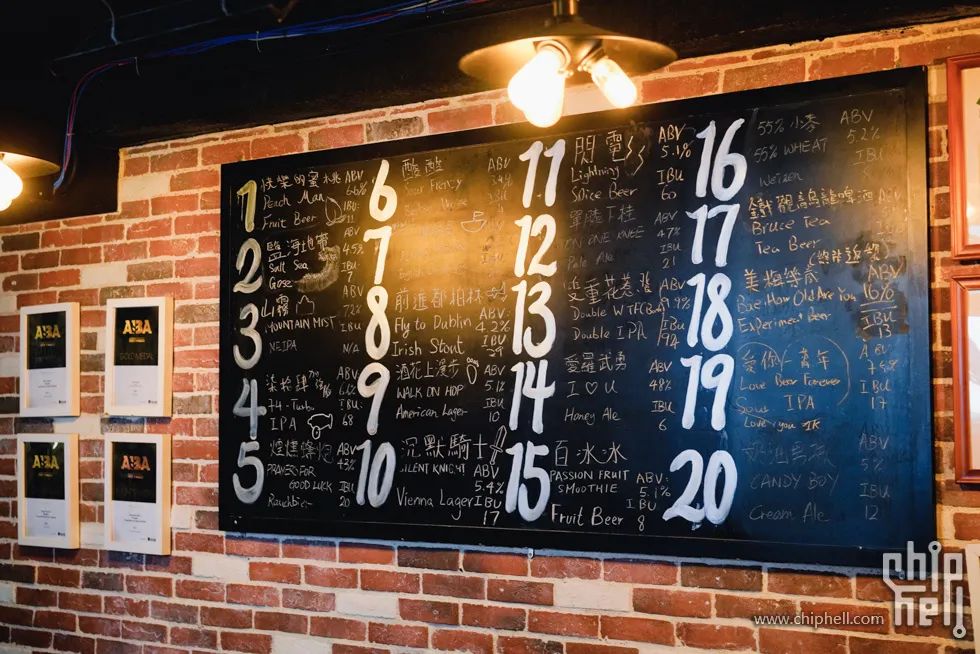 1
快樂的蜜桃
Peach Man
Fruit Beer
ABV
6.6%
IBU
11
2
鹽海地帶
Salt Sea
Gose
ABV
4.5%
IBU
3
山霧
MOUNTAIN MIST
NEIPA
ABV
7.2%
IBU
N/A
4
柒拾肆
74-Turbo
IPA
ABV
IBU:
68
5
PRAYERS FOR
GOOD LUCK
Rauchbier
ABV
4.3%
IBU
20
6
酸酸
Sour Frenzy
ABV
IBU
7
8
前進都柏林
Fly to Dublin
Irish Stout
ABV
4.2%
IBU
29
9
酒花上漫步
WALK ON HOP
American Lager
ABV
5.1%
IBU
10
10
沉默騎士
SILENT KNIGHT
Vienna Lager
ABV
5.4%
IBU
17
11
閃電
Lightning
Slice Beer
ABV
5.1%
IBU
60
12
單膝下桂
ON ONE KNEE
Pale Ale
ABV
4.7%
IBU
21
13
Double WTFC
Double IPA
ABV
9.9%
IBU
194
14
愛羅武勇
I ♡ U
Honey Ale
ABV
4.8%
IBU
6
15
百冰冰
PASSION FRUIT
SMOOTHIE
Fruit Beer
ABV:
5.1%
IBU
8
16
55% 小麥
55% WHEAT
Weizen
ABV
5.2%
IBU
17
Bruce Tea
Tea Beer
ABV
IBU
18
美梅等春
Bae, How Old Are You
Experiment Beer
ABV
16%
IBU
13
19
愛你一萬年
Love Beer Forever
Sour IPA
Love you 1K
ABV
IBU
17
20
CANDY BOY
Cream Ale
ABV
5%
IBU
12
ABA
ABA
GOLD MEDAL
ABA
ABA
chip
hell
www.chiphell.com